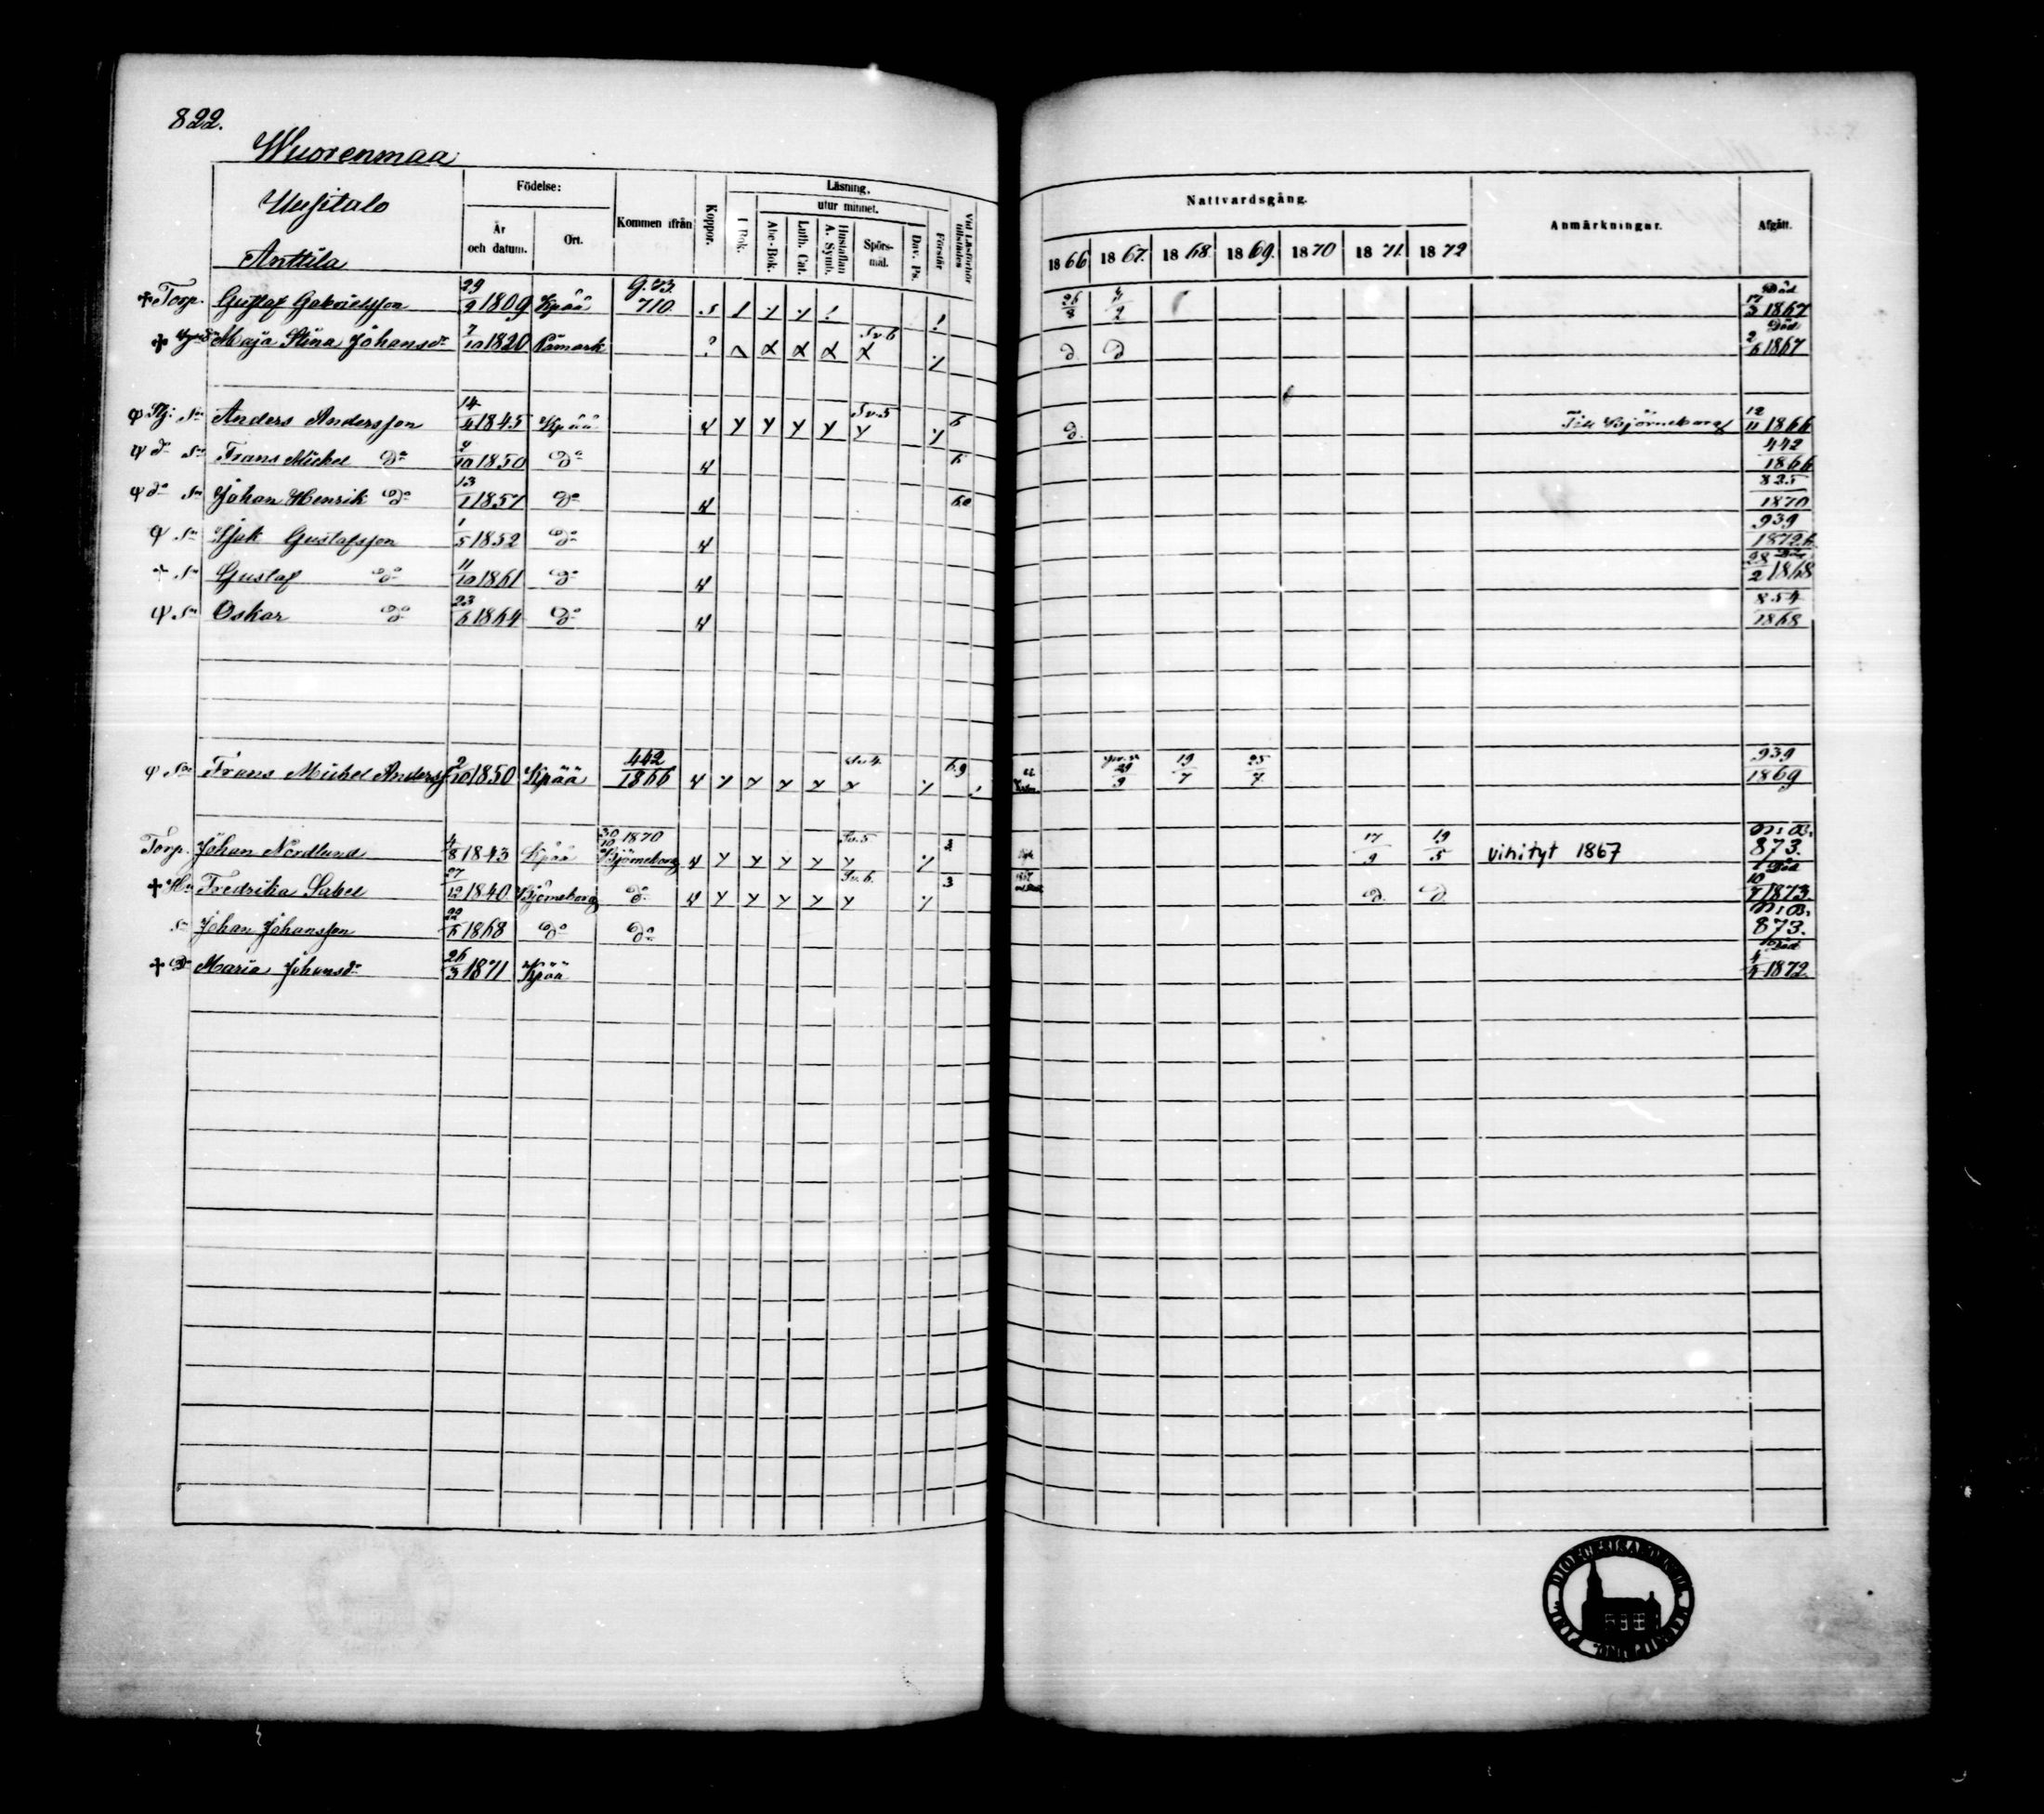 822.
Wuorenmaa
Uusitalo
Anttila
Födelse:
År och datum.
Ort.
Kommen ifrån
Koppor.
Läsning.
I Bok.
utur minnet.
Abc-Bok.
Luth. Cat.
Hustaflan A. Symb.
Spörs-mål.
Dav. Ps.
Förstår
Vid Läsförhör tillstädes
Nattvardsgång.
1866 1867. 1868. 1869. 1870 1871. 1872
Anmärkningar.
Afgått.
† Torp. Gustaf Gabrielsson 29/9 1809 Kpää G.B. 710. 26/8 Död 17/5 1867
† Maja Stina Johansdr 7/10 1820 Påmark Sv 6 d d Död 2/6 1867
Anders Andersson 14/4 1845 Kpää Sv. 5 6 d. Till Björneborg 12/11 1866
do Sn Frans Mickel do 2/10 1850 do 6 442/1866
do Sn Johan Henrik do 13/1 1857 do 60 835/1870
Sn Isak Gustafsson 1/5 1852 do 939/1872
† Sn Gustaf do 11/10 1861 do 28/2 Död 1868
Sn Oskar do 23/6 1864 do 854/1868
Sn Frans Mickel Anderss 2/10 1850 Kpää 442/1866 Sv. 4. 6.9 29/9 19/7 25/7 939/1869
Torp. Johan Nordlund 4/8 1843 Kpää 30/10 1870 Björneborg Sv. 5 3 17/9 19/5 vihityt 1867 N. B. 873.
† Hu Fredrika Sabel 27/12 1840 Björneborg do Sv. 6. 3 d. d. Död 10/7 1873.
Sn Johan Johansson 22/6 1868 do do N. B. 873.
† Dr Maria Johansdr 26/3 1871 Kpää Död 4/4 1872.